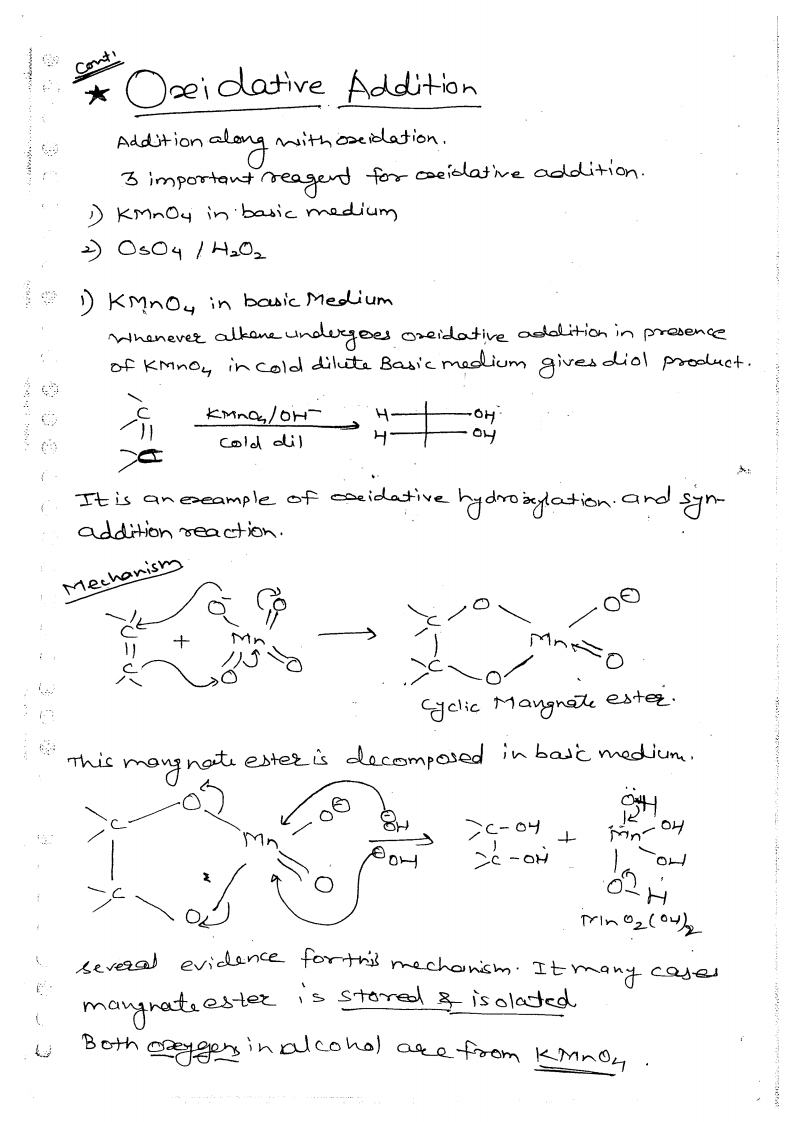 Cont'
★ Oxidative Addition
Addition along with oxidation.
3 important reagent for oxidative addition.
1) KMnO4 in basic medium
2) OsO4 / H2O2
1) KMnO4 in basic Medium
Whenever alkene undergoes oxidative addition in presence
of KMnO4 in cold dilute Basic medium gives diol product.
C
KMnO4/OH⁻
H OH
C
cold dil
H OH
It is an example of oxidative hydroxylation and syn-
addition reaction.
Mechanism
C O⁻ O
+ Mn
C O O
C O O⊖
Mn
C O O
Cyclic Mangnate ester.
This mangnate ester is decomposed in basic medium.
C O O⊖ ⊖OH
Mn
C O O ⊖OH
C-OH + Mn OH
C-OH OH
O H
MnO2(OH)2
several evidence for this mechanism. It many cases
mangnate ester is stored & isolated
Both oxygens in alcohol are from KMnO4.